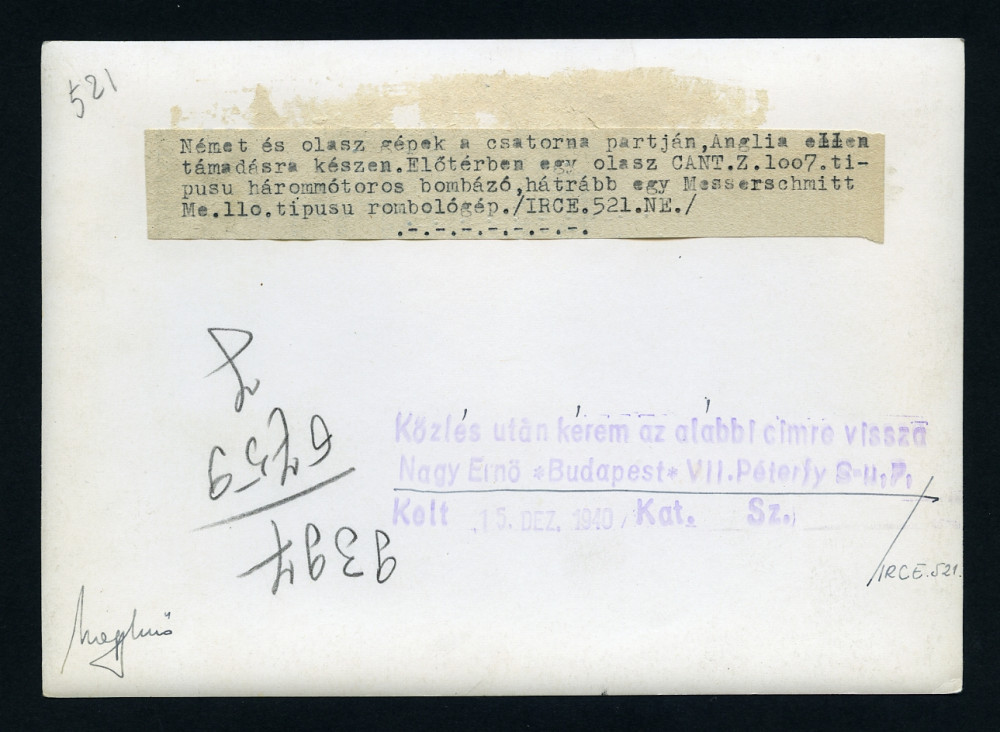 521
Német és olasz gépek a csatorna partján,Anglia ellen
támadásra készen.Előtérben egy olasz CANT.Z.loo7.ti-
pusu hárommótoros bombázó,hátrább egy Messerschmitt
Me.llo.tipusu rombológép./IRCE.521.NE./
.-.-.-.-.-.-.-.
Közlés után kérem az alábbi címre vissza
Nagy Ernö *Budapest* VII.Péterfy S-u,7,
Kelt 15. DEZ. 1940 Kat. Sz.
IRCE.521.
9394